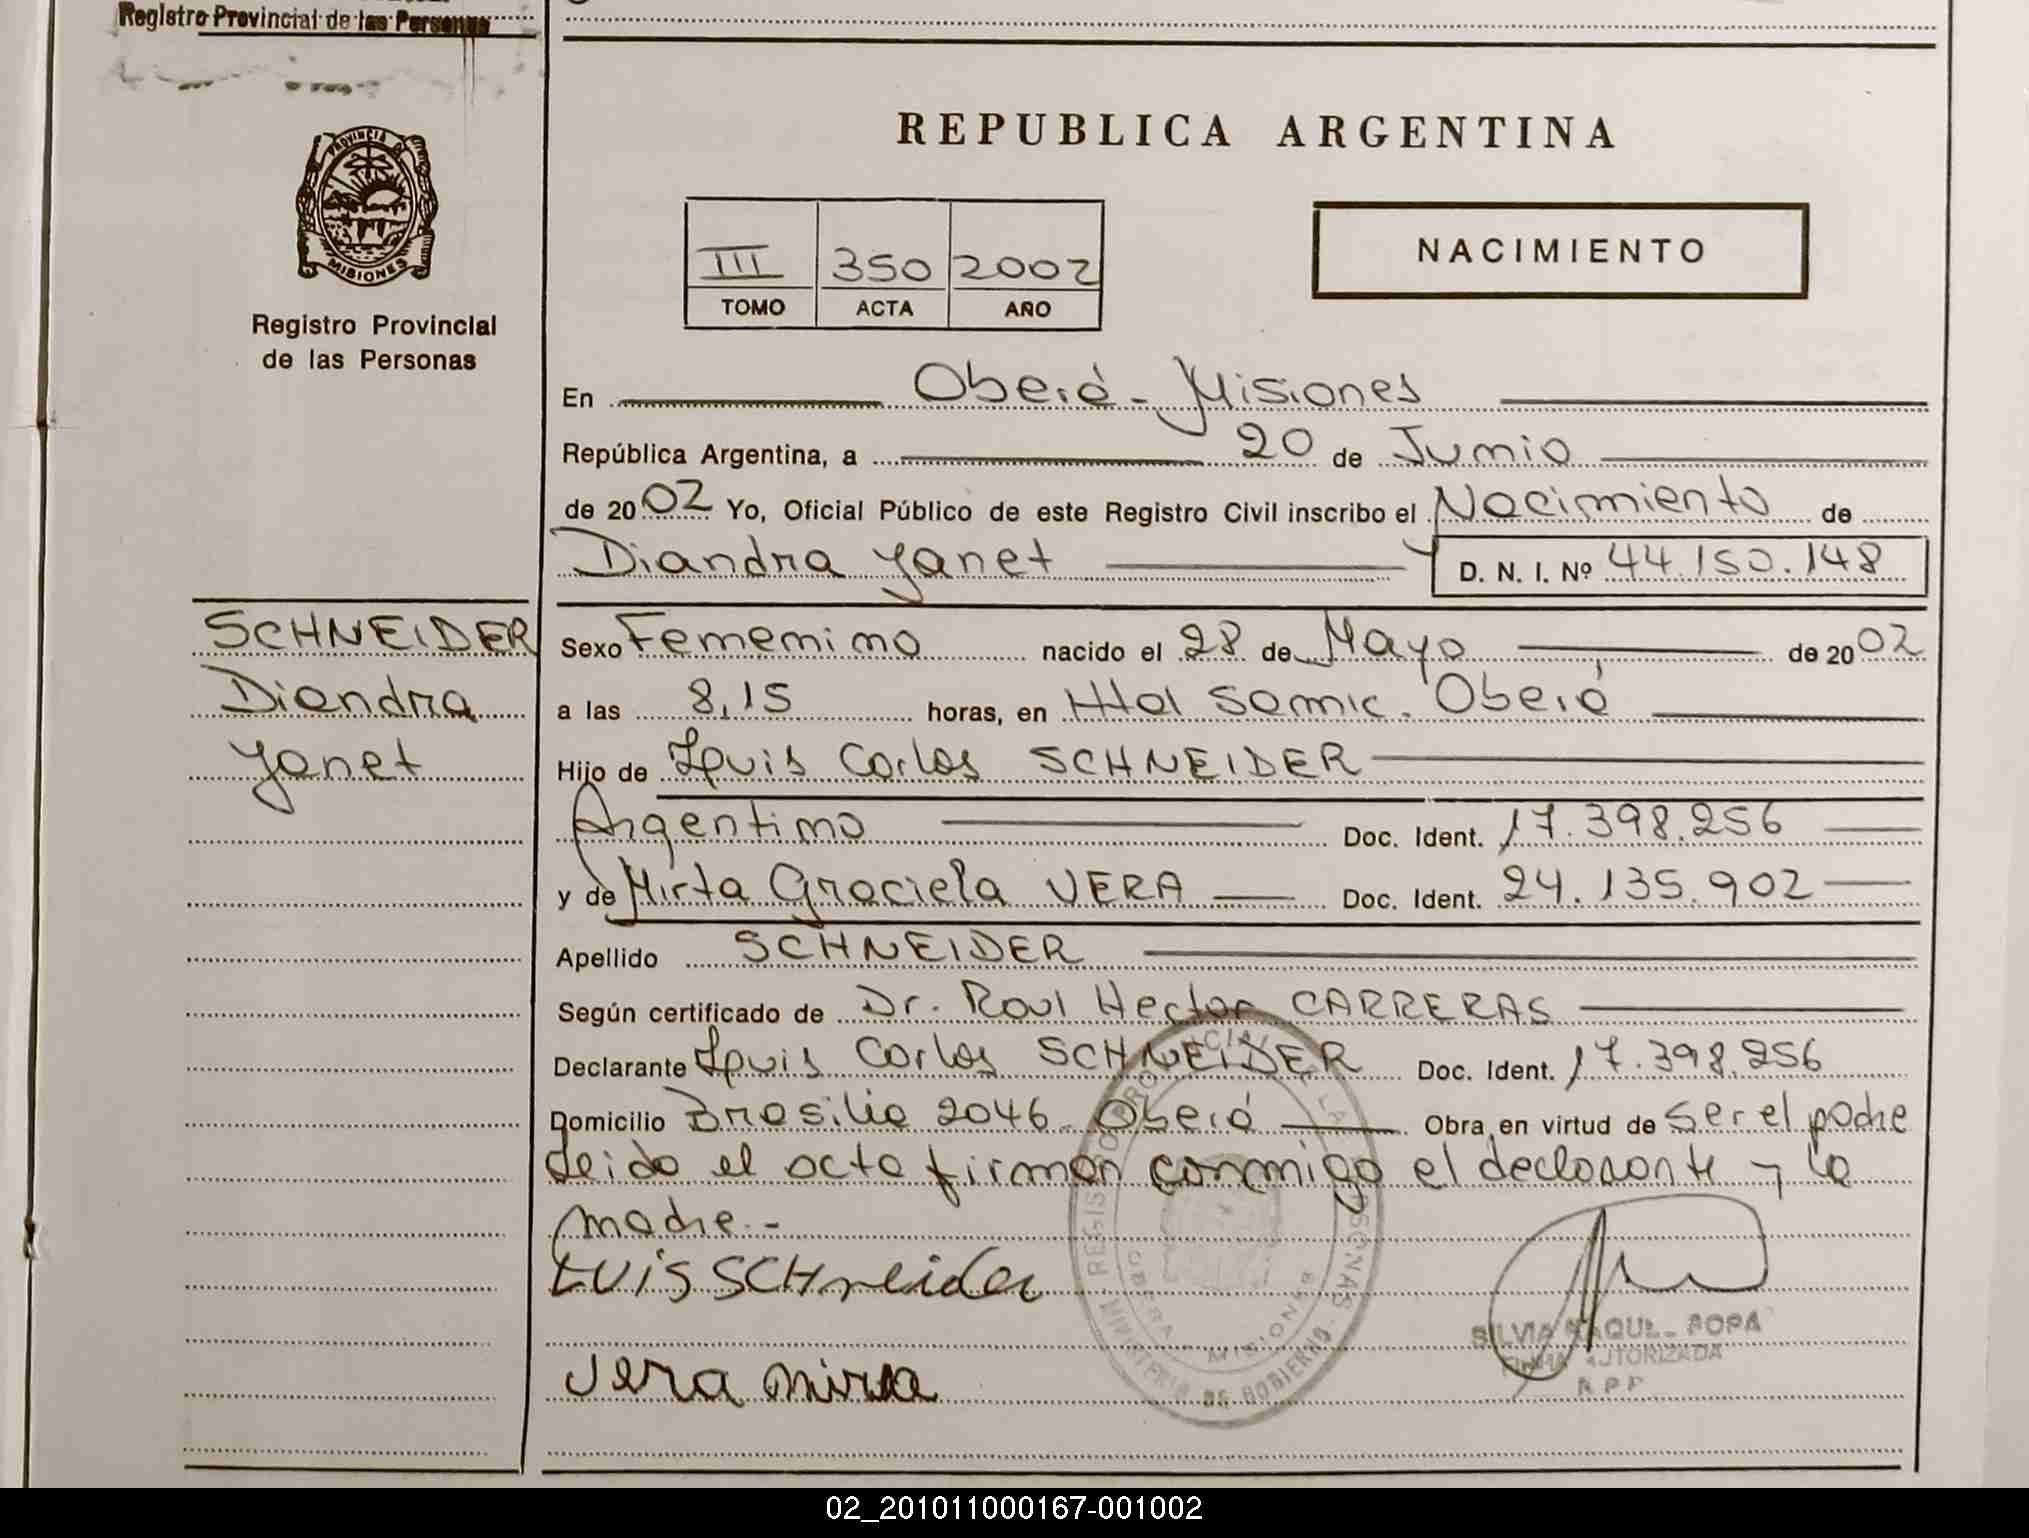 Registro Provincial de las Personas
PROVINCIA DE
MISIONES
Registro Provincial
de las Personas
REPUBLICA ARGENTINA
III 350 2002
TOMO ACTA AÑO
NACIMIENTO
En Oberá - Misiones
República Argentina, a 20 de Junio
de 2002 Yo, Oficial Público de este Registro Civil inscribo el Nacimiento de
Diandra Yanet D. N. I. Nº 44.150.148
SCHNEIDER
Diandra
Yanet
Sexo Femenino nacido el 28 de Mayo de 2002
a las 8,15 horas, en Htal Samic. Oberá
Hijo de Luis Carlos SCHNEIDER
Argentino Doc. Ident. 17.398.256
y de Mirta Graciela VERA Doc. Ident. 24.135.902
Apellido SCHNEIDER
Según certificado de Dr. Raul Hector CARRERAS
Declarante Luis Carlos SCHNEIDER Doc. Ident. 17.398.256
Domicilio Brasilia 2046 - Oberá Obra en virtud de ser el padre
Leido el acta firman conmigo el declarante y la
madre.-
LUIS SCHneider
Vera Mirta
REGISTRO PROVINCIAL DE LAS PERSONAS
MINISTERIO DE GOBIERNO
OBERA - MISIONES
SILVIA RAQUEL
FIRMA AUTORIZADA
R P P
02_201011000167-001002